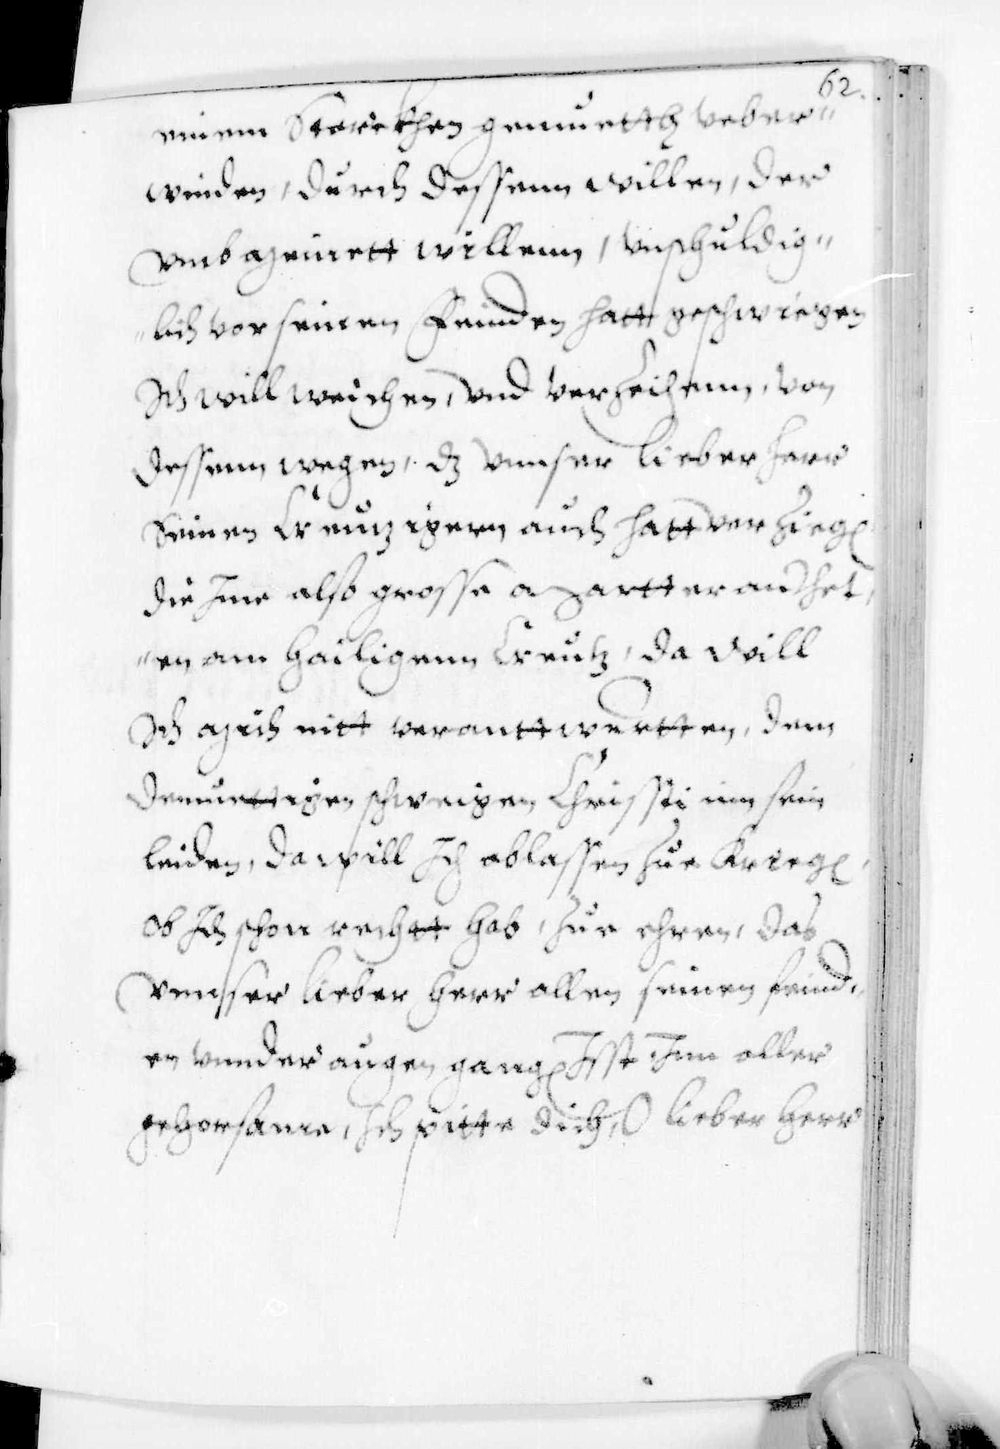 62.
einem Storckhen gemuetth veber„
winden, durch dessenn willen, der
vmb meinett willenn, vnschuldig„
„lich vor seinen Feinden hatt geschwiegen
Ich will weichen, vnd verzeihenn, von
dessenn wegen, dz vnnser lieber Herr
Seinen Creutzigern auch hatt verziegen
die Ime also grosse Martter anthet„
„en am hailigenn Creutz, da will
Ich mich nitt veranttwortten, dem
demuettigen schweigen Christi inn sein
leiden, da will Ich ablassen zue kriegen,
ob Ich schon rechtt hab, zue ehren, das
vnnser lieber Herr allen seinen feind„
en vnnder augen gangen Isst Inn aller
gehorsame, Ich pitte dich, O lieber Herr